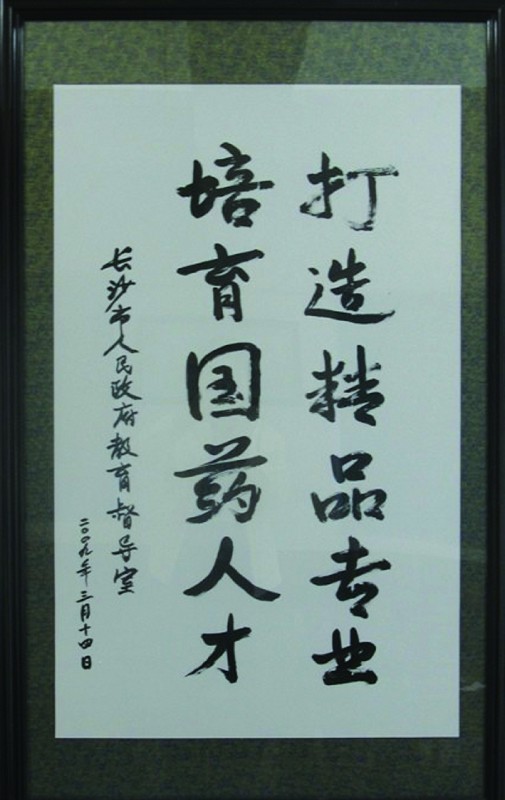 打造精品专业
培育国药人才
长沙市人民政府教育督导室
二00九年三月十四日